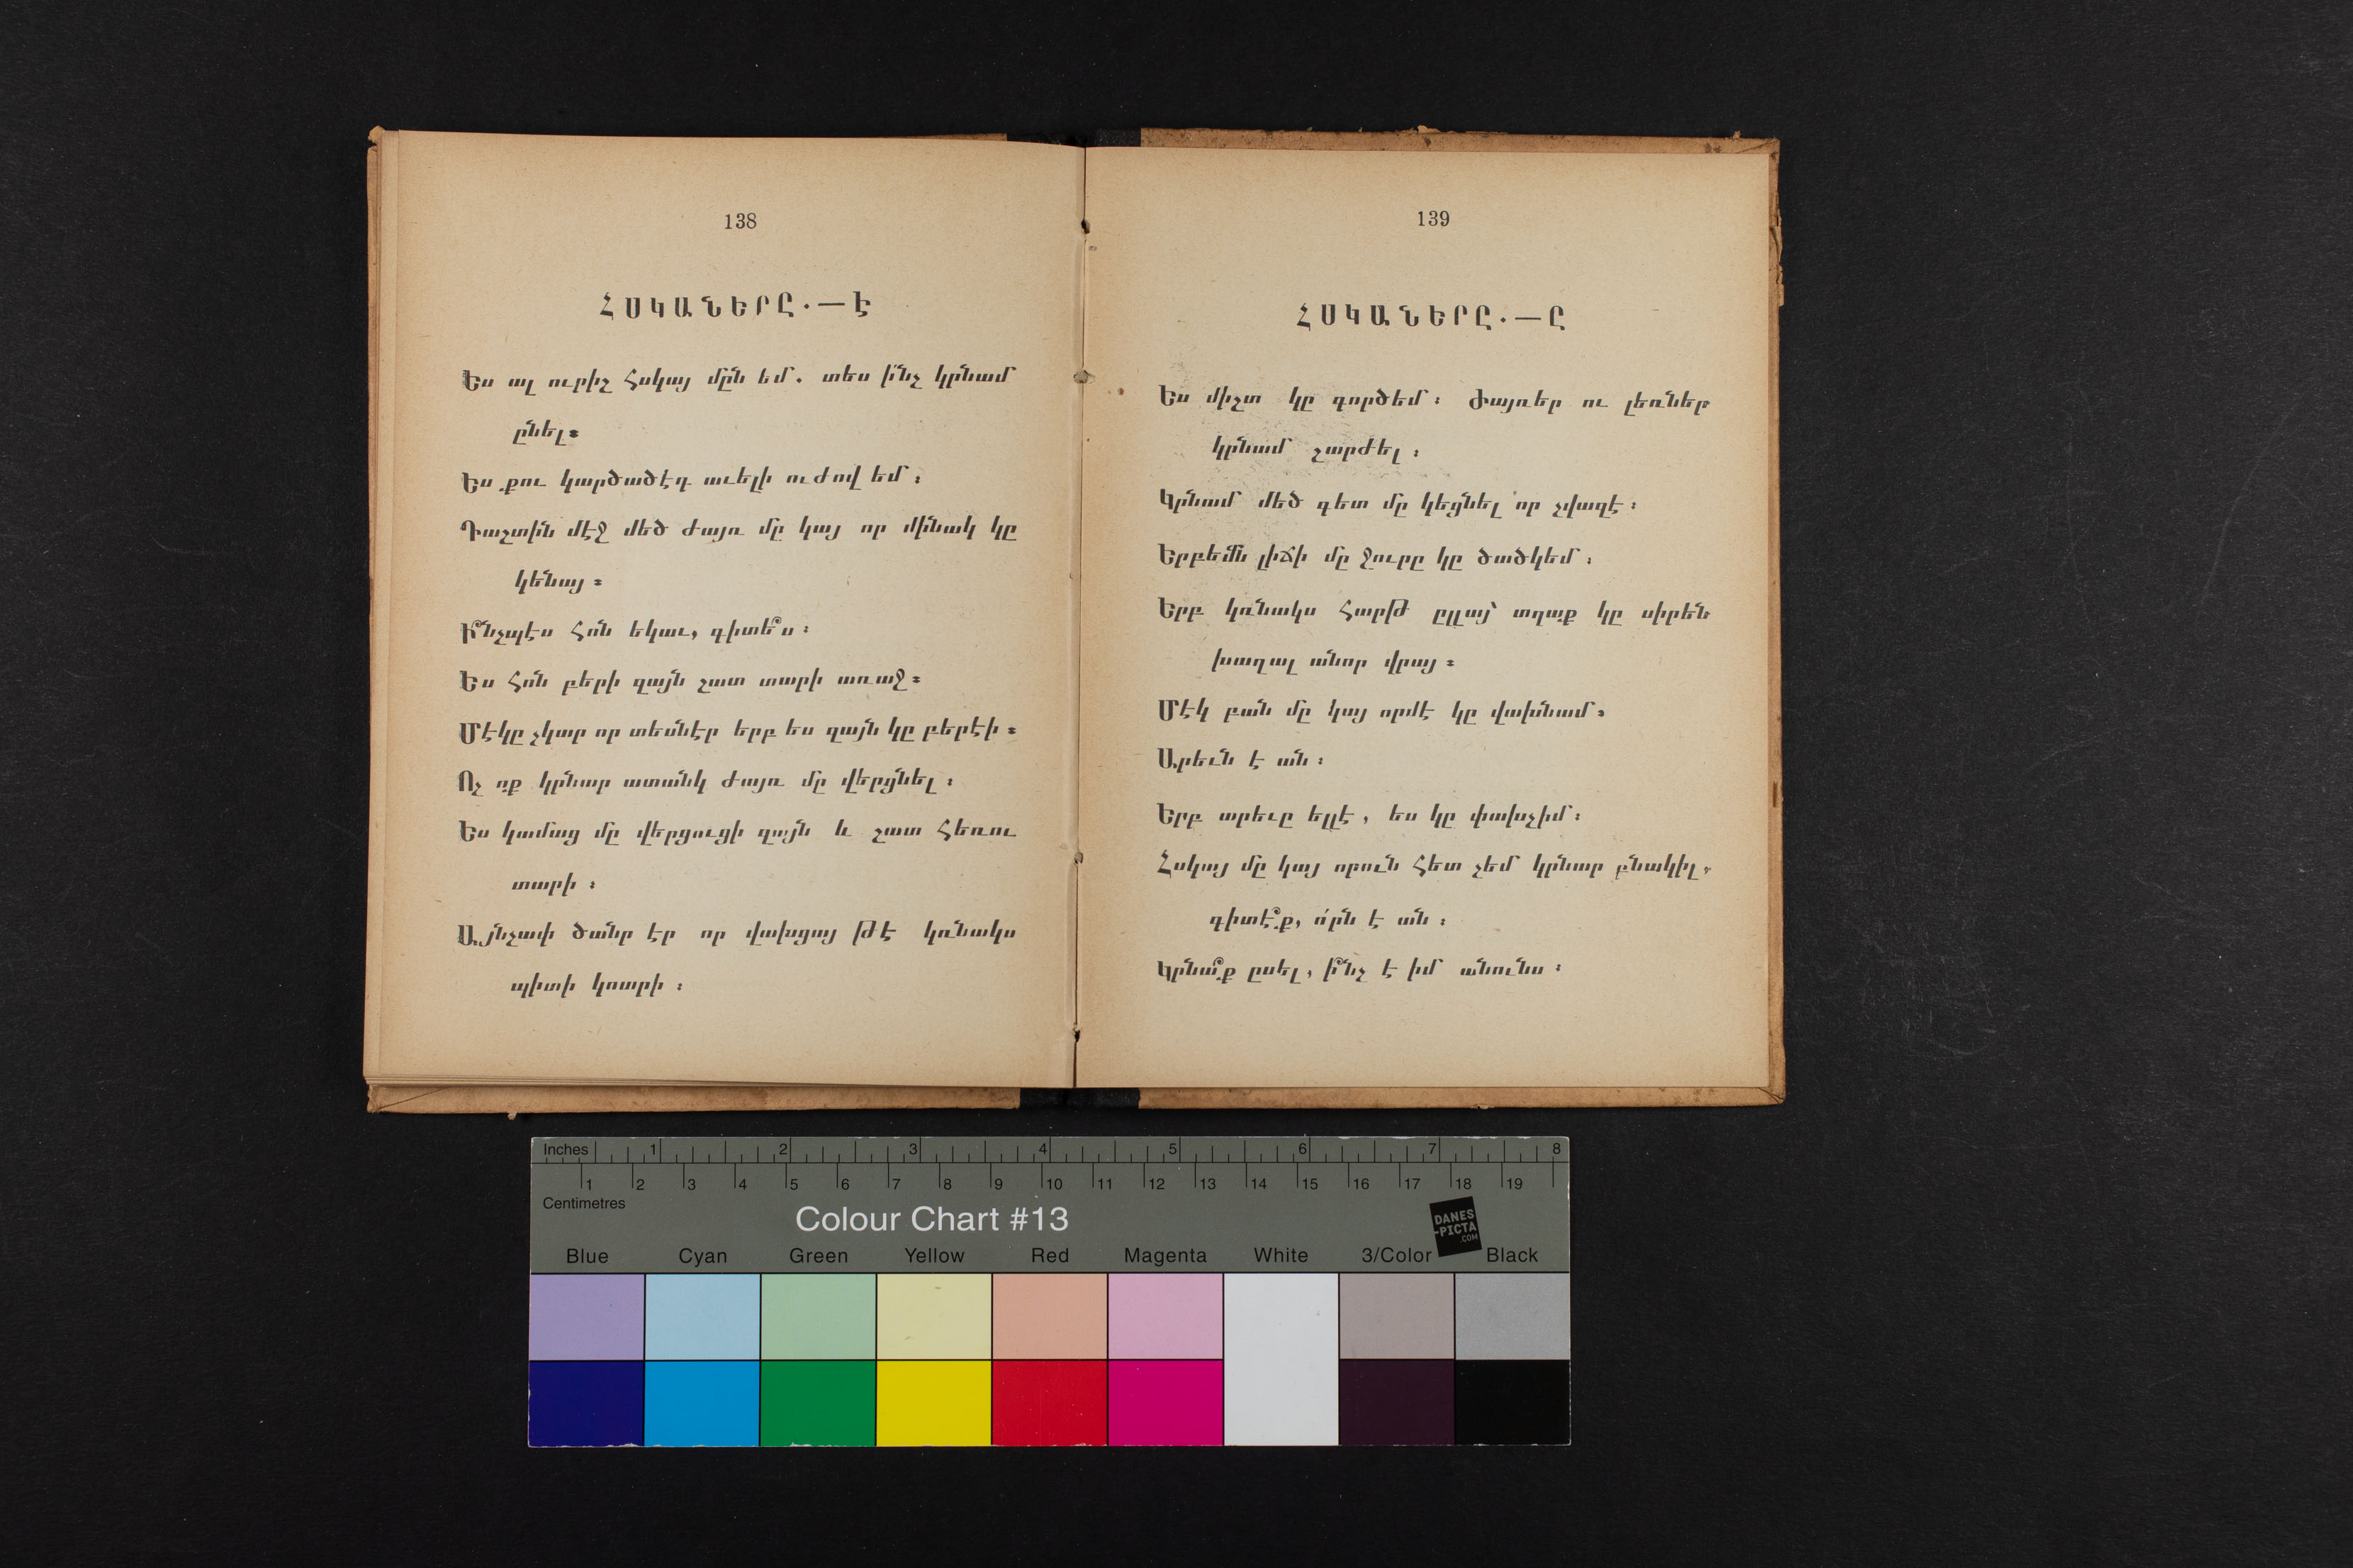 138
ՀՍԿԱՆԵՐԸ.—Է
Ես ալ ուրիշ հսկայ մըն եմ. տես ի՛նչ կրնամ
ընել։
Ես քու կարծածէդ աւելի ուժով եմ։
Դաշտին մէջ մեծ ժայռ մը կայ որ մինակ կը
կենայ։
Ի՞նչպէս հոն եկաւ, գիտե՞ս։
Ես հոն բերի զայն շատ տարի առաջ։
Մէկը չկար որ տեսնէր երբ ես զայն կը բերէի։
Ոչ ոք կրնար ատանկ ժայռ մը վերցնել։
Ես կամաց մը վերցուցի զայն և շատ հեռու
տարի։
Այնչափ ծանր էր որ վախցայ թէ կռնակս
պիտի կոտրի։
139
ՀՍԿԱՆԵՐԸ.—Ը
Ես միշտ կը գործեմ։ Ժայռեր ու լեռներ
կրնամ շարժել։
Կրնամ մեծ գետ մը կեցնել որ չվազէ։
Երբեմն լիճի մը ջուրը կը ծածկեմ։
Երբ կռնակս հարթ ըլլայ՝ տղաք կը սիրեն
խաղալ անոր վրայ։
Մէկ բան մը կայ որմէ կը վախնամ։
Արեւն է ան։
Երբ արեւը ելլէ, ես կը փախչիմ։
Հսկայ մը կայ որուն հետ չեմ կրնար բնակիլ.
գիտէ՞ք, ո՛րն է ան։
Կրնա՞ք ըսել, ի՞նչ է իմ անունս։
Inches 1 2 3 4 5 6 7 8
1 2 3 4 5 6 7 8 9 10 11 12 13 14 15 16 17 18 19
Centimetres
Colour Chart #13
DANES
-PICTA
.COM
Blue Cyan Green Yellow Red Magenta White 3/Color Black